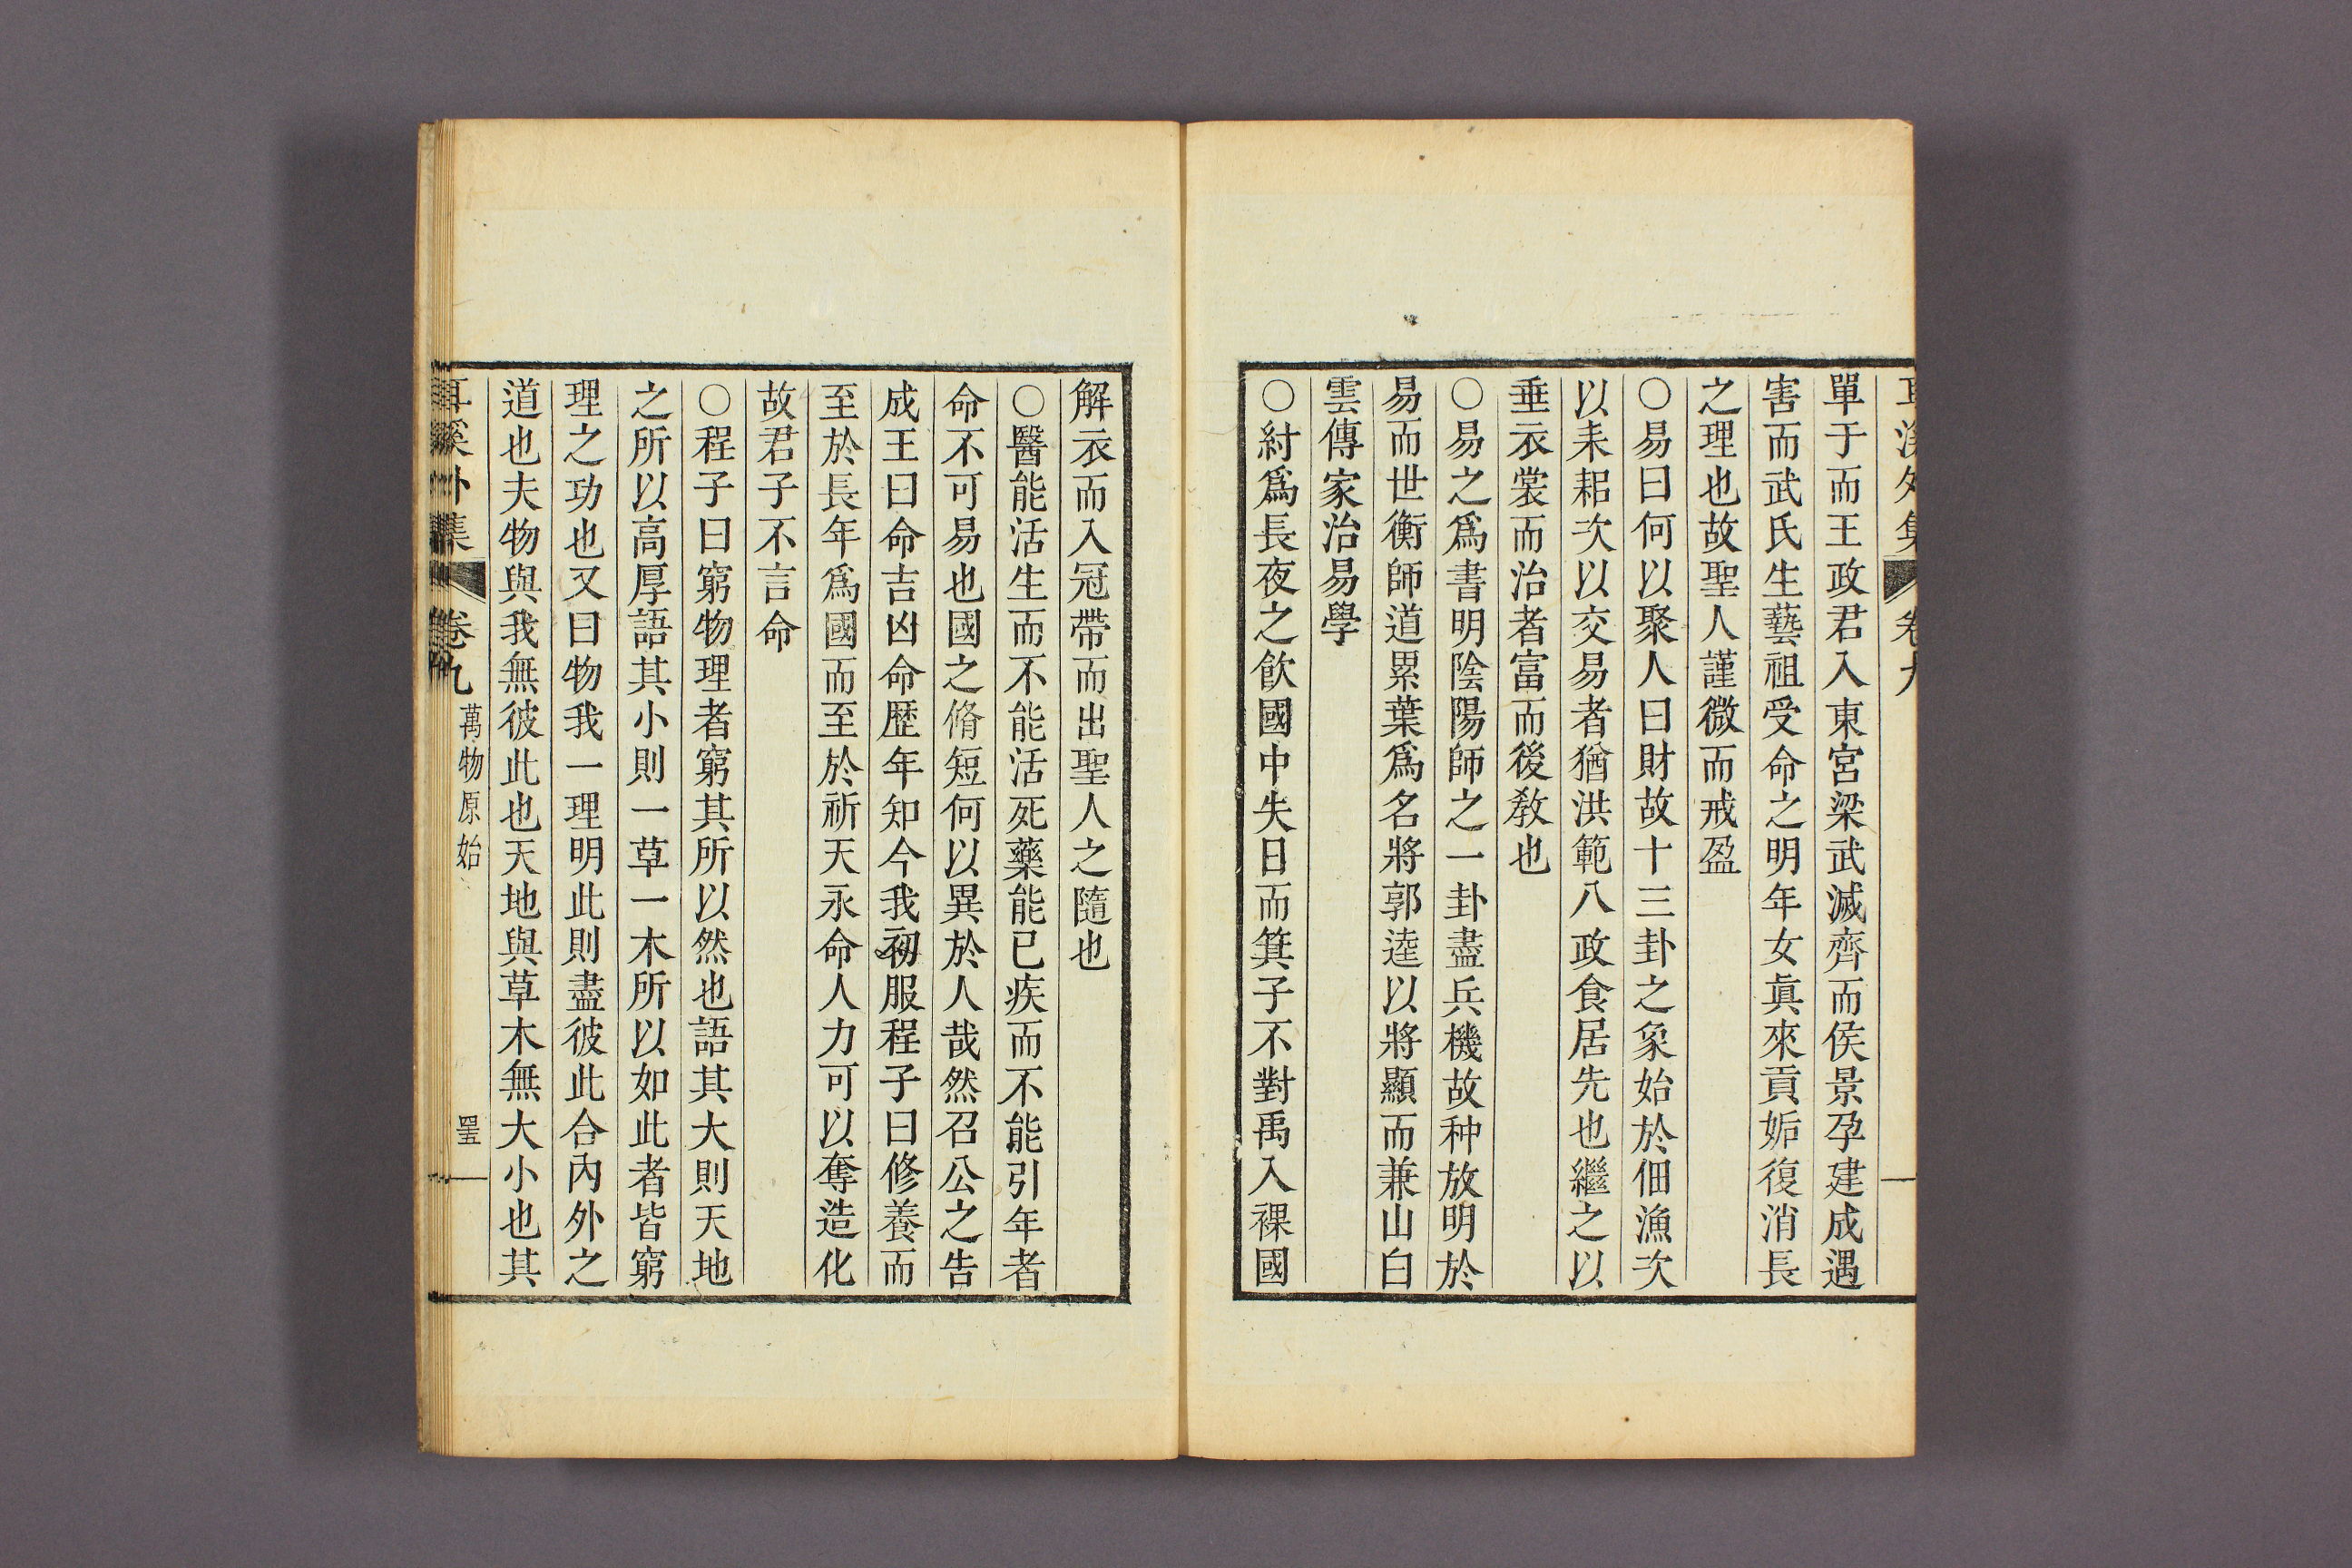 耳溪外集 卷九
單于而王政君入東宮梁武滅齊而侯景孕建成遇
害而武氏生藝祖受命之明年女眞來貢姤復消長
之理也故聖人謹微而戒盈
○易曰何以聚人曰財故十三卦之象始於佃漁次
以耒耜次以交易者猶洪範八政食居先也繼之以
垂衣裳而治者富而後敎也
○易之爲書明陰陽師之一卦盡兵機故种放明於
易而世衡師道累葉爲名將郭逵以將顯而兼山白
雲傳家治易學
○紂爲長夜之飮國中失日而箕子不對禹入裸國
解衣而入冠帶而出聖人之隨也
○醫能活生而不能活死藥能已疾而不能引年者
命不可易也國之脩短何以異於人哉然召公之告
成王曰命吉凶命歷年知今我初服程子曰修養而
至於長年爲國而至於祈天永命人力可以奪造化
故君子不言命
○程子曰窮物理者窮其所以然也語其大則天地
之所以高厚語其小則一草一木所以如此者皆窮
理之功也又曰物我一理明此則盡彼此合內外之
道也夫物與我無彼此也天地與草木無大小也其
耳溪外集 卷九 萬物原始 罜